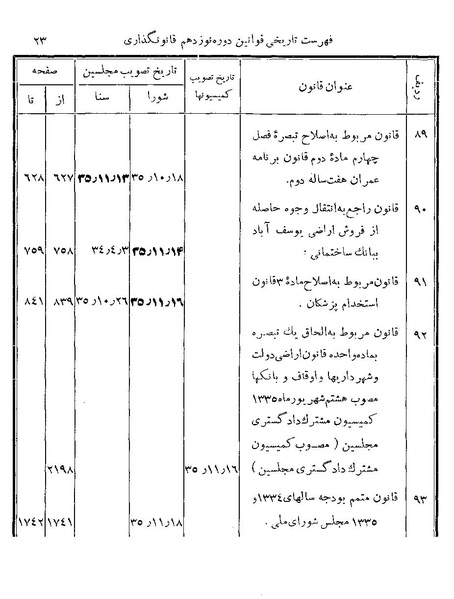 فهرست تاریخی قوانین دوره نوزدهم قانونگذاری ۲۳
ردیف عنوان قانون تاریخ تصویب کمیسیونها تاریخ تصویب مجلسین صفحه
شورا سنا از تا
۸۹ قانون مربوط به اصلاح تبصرهٔ فصل
چهارم مادهٔ دوم قانون برنامه
عمران هفت‌سالهٔ دوم. ۳۵٫۱۰٫۱۸ ۳۵٫۱۱٫۱۳ ۶۲۷ ۶۲۸
۹۰ قانون راجع به انتقال وجوه حاصله
از فروش اراضی یوسف آباد
ببانك ساختمانی. ۳۵٫۱۱٫۱۴ ۳٤٫٤٫۳ ۷۵۸ ۷۵۹
۹۱ قانون مربوط به اصلاح مادهٔ ۳ قانون
استخدام پزشکان. ۳۵٫۱۱٫۱۶ ۳۵٫۱۰٫۲۶ ۸۳۹ ۸٤۱
۹۲ قانون مربوط به الحاق یك تبصره
بماده واحده قانون اراضی دولت
وشهرداریها و اوقاف و بانکها
مصوب هشتم شهریورماه ۱۳۳۵
کمیسیون مشترك دادگستری
مجلسین ( مصوب کمیسیون
مشترك دادگستری مجلسین ) ۳۵٫۱۱٫۱۶ ۲۱۹۸
۹۳ قانون متمم بودجه سالهای ۱۳۳٤ و
۱۳۳۵ مجلس شورای ملی. ۳۵٫۱۱٫۱۸ ۱۷٤۱ ۱۷٤۲